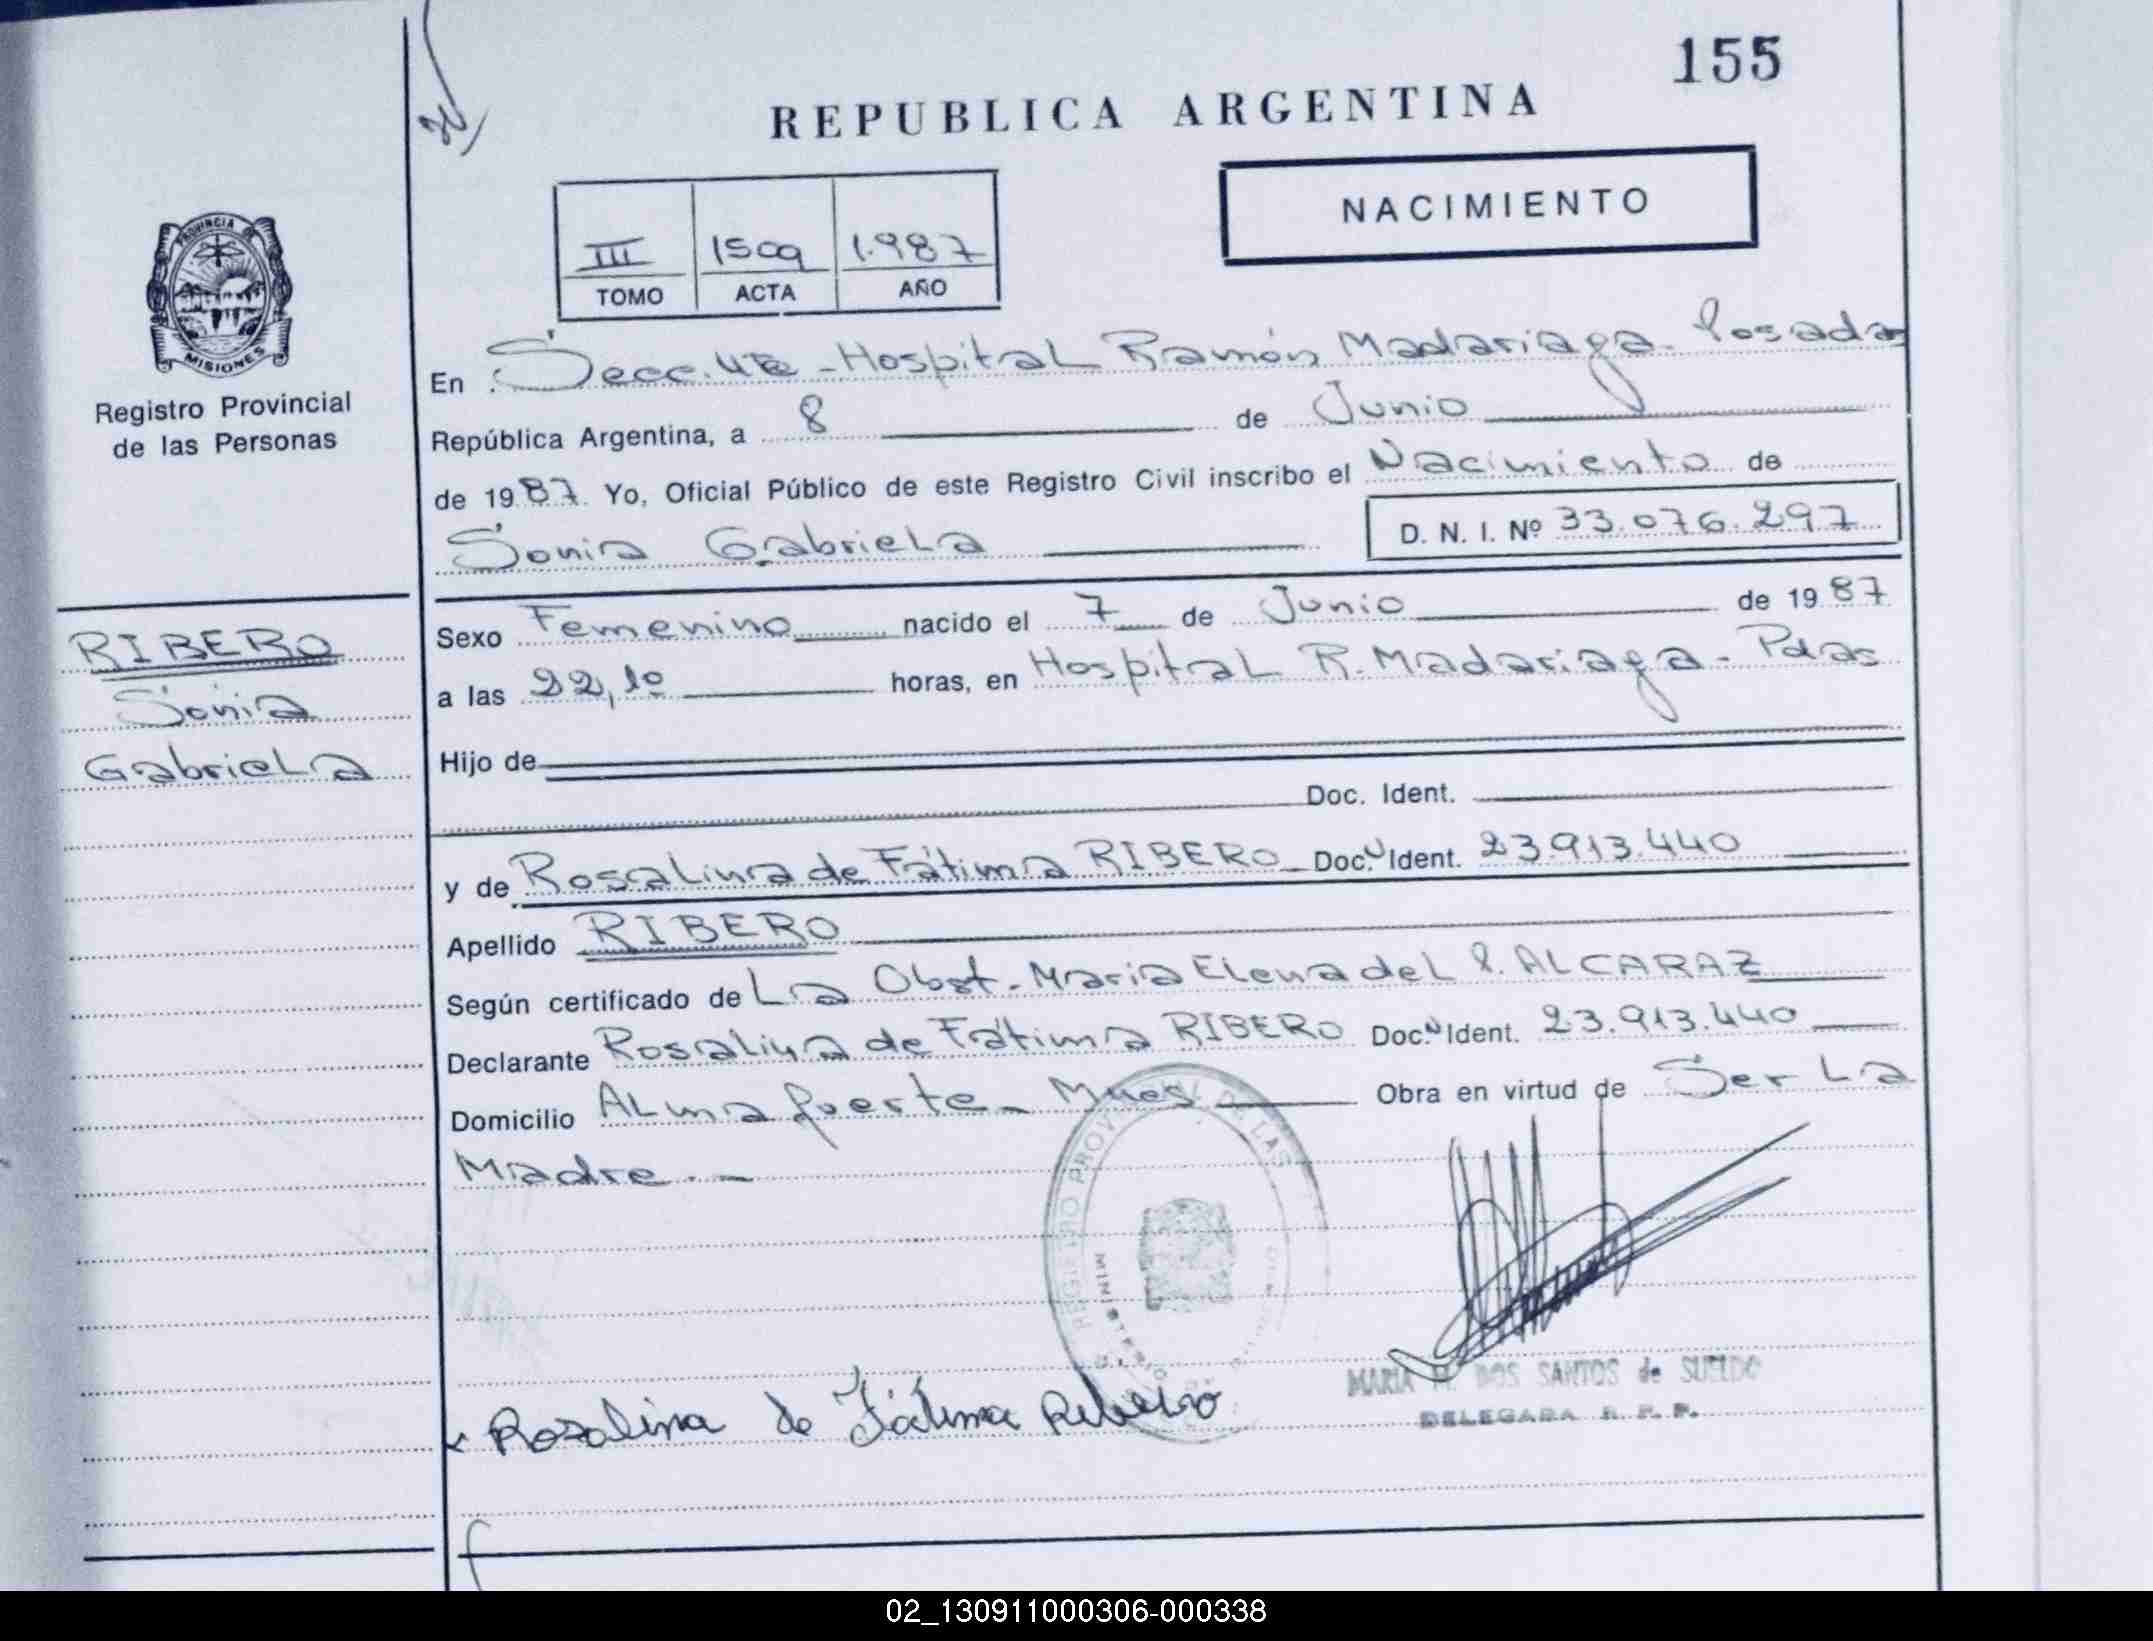 155
REPUBLICA ARGENTINA
NACIMIENTO
III 1509 1.987
TOMO ACTA AÑO
PROVINCIA DE
MISIONES
Registro Provincial
de las Personas
RIBERO
Sonia
Gabriela
En Secc. 4ta - Hospital Ramón Madariaga - Posadas
República Argentina, a 8 de Junio
de 1987. Yo, Oficial Público de este Registro Civil inscribo el Nacimiento de
Sonia Gabriela D. N. I. Nº 33.076.297
Sexo Femenino nacido el 7 de Junio de 1987
a las 22,10 horas, en Hospital R. Madariaga - Pdas
Hijo de
Doc. Ident.
y de Rosalina de Fátima RIBERO Doc. Ident. 23.913.440
Apellido RIBERO
Según certificado de La Obst. Maria Elena del R. ALCARAZ
Declarante Rosalina de Fátima RIBERO Doc. Ident. 23.913.440
Domicilio Alma fuerte - Mnes Obra en virtud de Ser La
Madre. -
REGISTRO PROVINCIAL DE LAS
MINISTERIO
Rosalina de Fátima Ribeiro
MARIA M. DOS SANTOS de SUELDO
DELEGADA R. P. P.
02_130911000306-000338